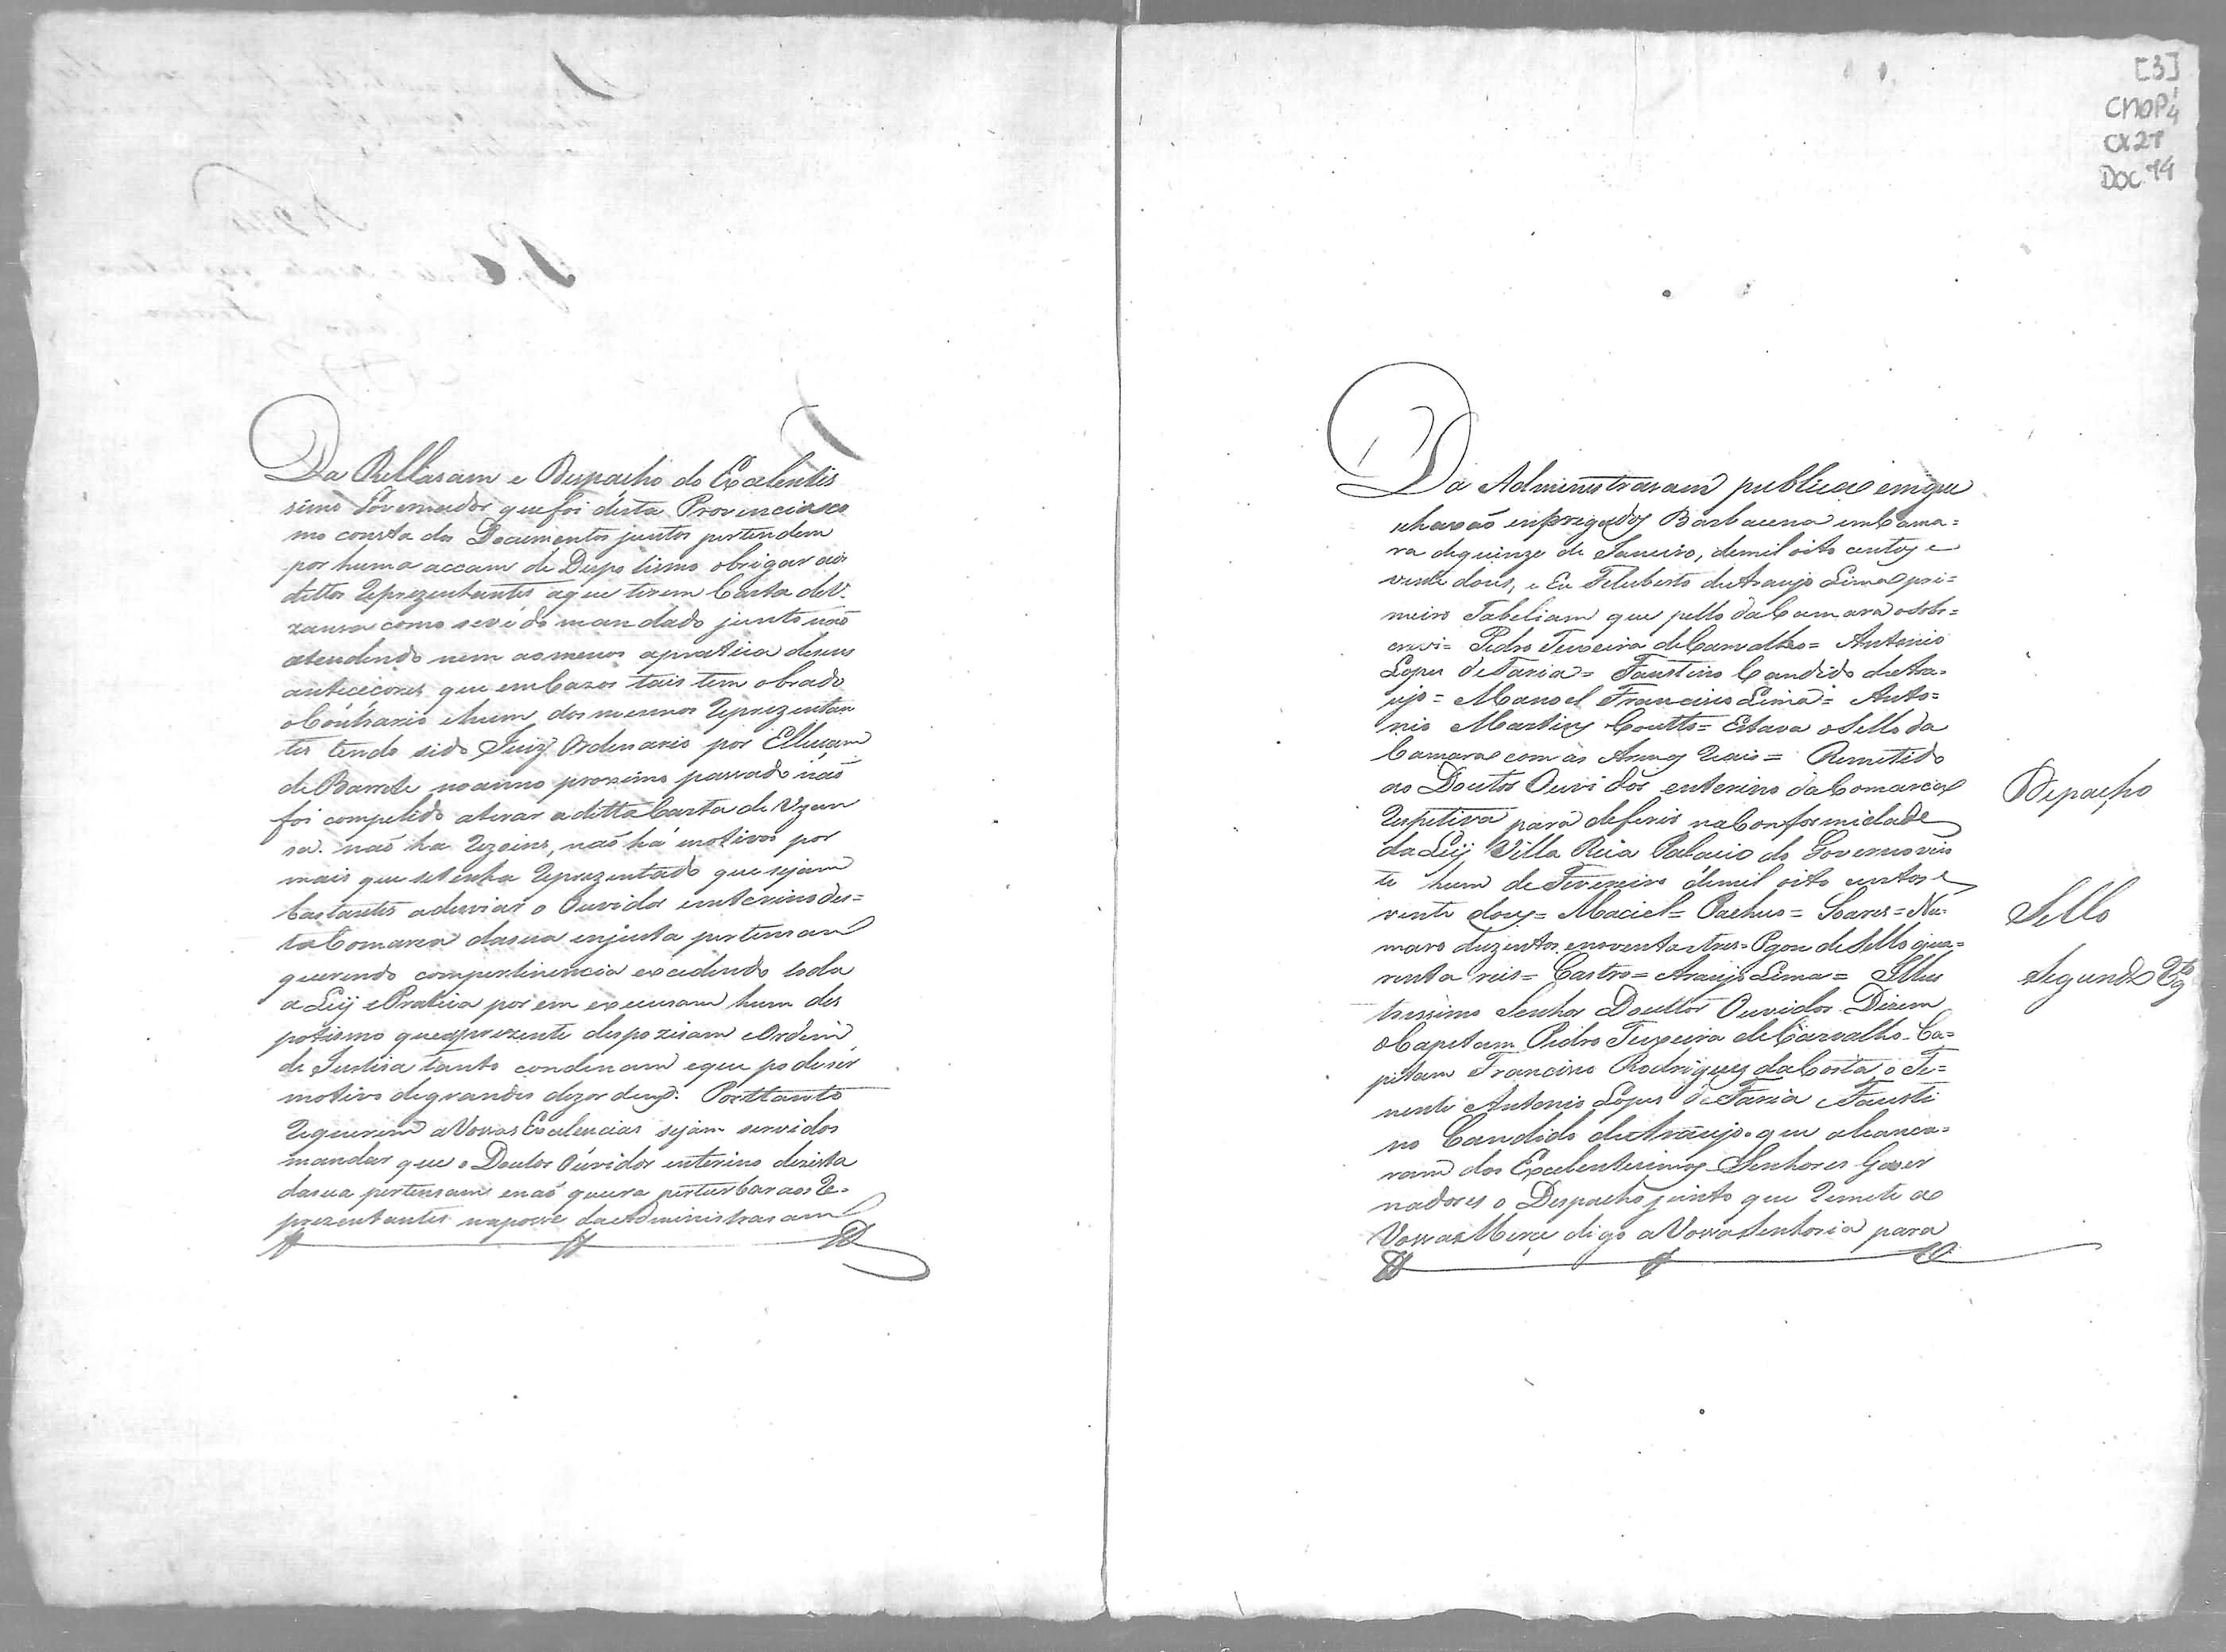 Da Rellasam e Despacho do Excelentis
simo Governador que foi desta Provencia co
mo consta dos Documentos juntos pertendem
por huma accam de Despotismo obrigar aos
dittos Reprezentantes aque tirem Carta de V.
zansa como se vê do mandado junto não
atendendo nem ao menos apratica deseus
antececores que em Cazos tais tem obrado
o Contrario e hum dos mesmos Reprezentan
tes tendo sido Juiz Ordenario por Elleicam
de Barrete no anno proximo passado não
foi compelido atirar a ditta Carta de Vzan
sa. não ha Rezoins, não há motivos por
mais que se tenha Reprezentado que sejam
bastantes adesviar o Ouvidor enterino des=
ta Comarca dasua enjusta pertensam
querendo com pertinencia excedendo toda
a Leij e Pratica por em execusam hum des
potismo que aprezente despozisam e Ordem
de Justisa tanto condenam e que pode ser
motivo de grandes dezordens. Porttanto
Requerem a Vossas Excelencias sejam servidos
mandar que o Doutor Ouvidor enterino dezista
dasua pertensam e não queira perturbar aos Re=
prezentantes na posse da Administrasam
[3]
CMOP
CX 27
DOC 74
Da Administrasam publica em que
se hasão enpregados Barbacena em Cama=
ra de quinze de Janeiro, de mil oito centos e
vinte dous, e Eu Feliberto de Araujo Lima pri=
meiro Tabeliam que pello da Camara o sobs=
crevi= Pedro Teixeira de Carvalho= Antonio
Lopes de Faria= Faustino Candido de Ara=
ujo= Manoel Francisco Lima= Anto=
nio Martins Coutto= Estava o Sello da
Camara com as Armas Reais= Remetido
ao Doutor Ouvidor enterino da Comarca
Despacho
Respetiva para deferir na Conformidade
da Leij Villa Rica Palacio do Governo vin
te hum de Fevereiro de mil oito centos e
vinte dous= Maciel= Pacheco= Soares= Nu=
Sello
maro duzentos e noventa e tres= Pgou de Sello qua=
renta reis= Castro= Araujo Lima= Illus
Segundo Rq.to
trissimo Senhor Douttor Ouvidor Dizem
o Capitam Pedro Teixeira de Carvalho Ca=
pitam Francisco Rodrigues da Costa o Te=
nente Antonio Lopes de Faria e Fausti
no Candido de Araujo. que alcanca=
ram dos Excelentisimos Senhores Gover
nadores o Despacho junto que Remete a
Vossa Merce digo a Vossa Senhoria para